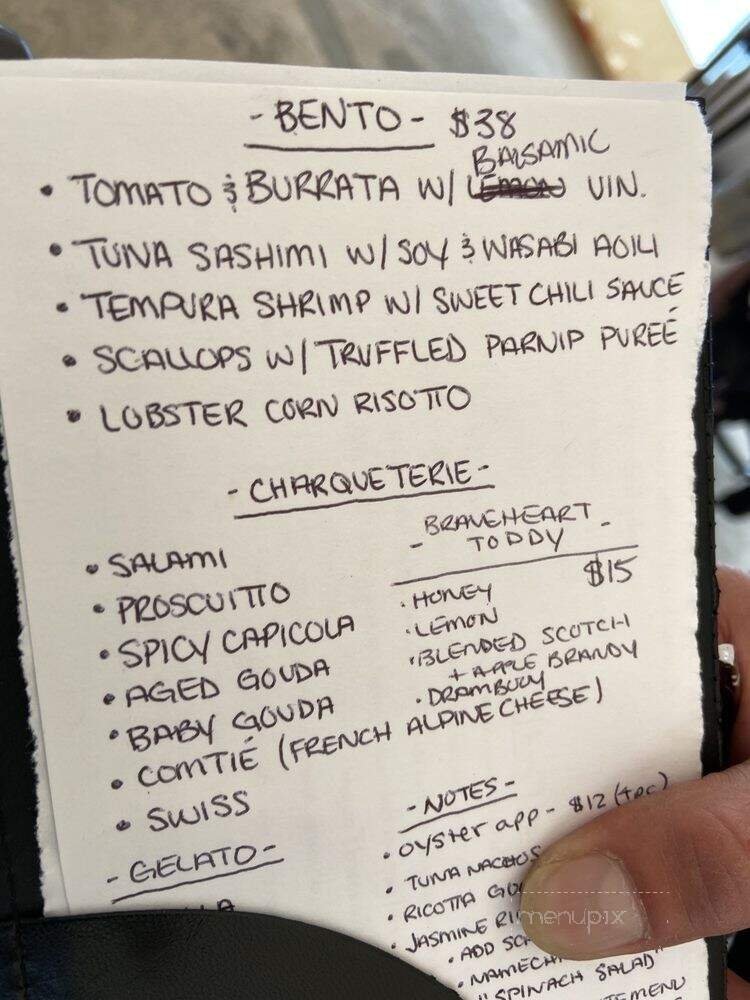 - BENTO - $38
BALSAMIC
• TOMATO & BURRATA W/ LEMON VIN.
• TUNA SASHIMI W/ SOY & WASABI AOILI
• TEMPURA SHRIMP W/ SWEET CHILI SAUCE
• SCALLOPS W/ TRUFFLED PARNIP PUREÉ
• LOBSTER CORN RISOTTO
- CHARQUETERIE -
• SALAMI
• PROSCUITTO
• SPICY CAPICOLA
• AGED GOUDA
• BABY GOUDA
• COMTIÉ (FRENCH ALPINE CHEESE)
• SWISS
- BRAVEHEART
TODDY -
$15
• HONEY
• LEMON
• BLENDED SCOTCH
+ APPLE BRANDY
• DRAMBUUY
- GELATO -
- NOTES -
• OYSTER APP - $12 (TPC)
• TUNA NACHOS
• RICOTTA
• JASMINE
• ADD
"SPINACH SALAD"
menupix